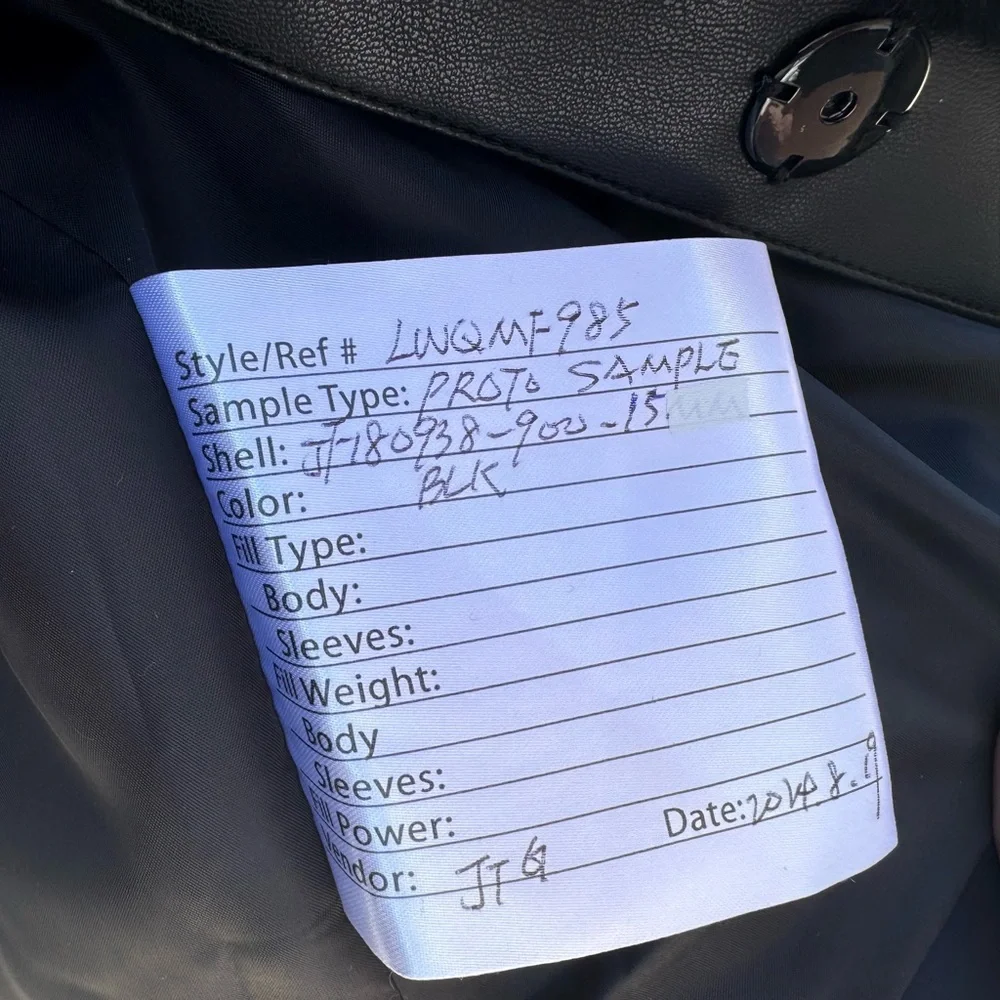 Style/Ref # LWQMF985
Sample Type: PROTO SAMPLE
Shell: JT-180938-900-15
Color: BLK
Fill Type:
Body:
Sleeves:
Fill Weight:
Body
Sleeves:
Fill Power:
Vendor: JTG Date: 2024.8.19